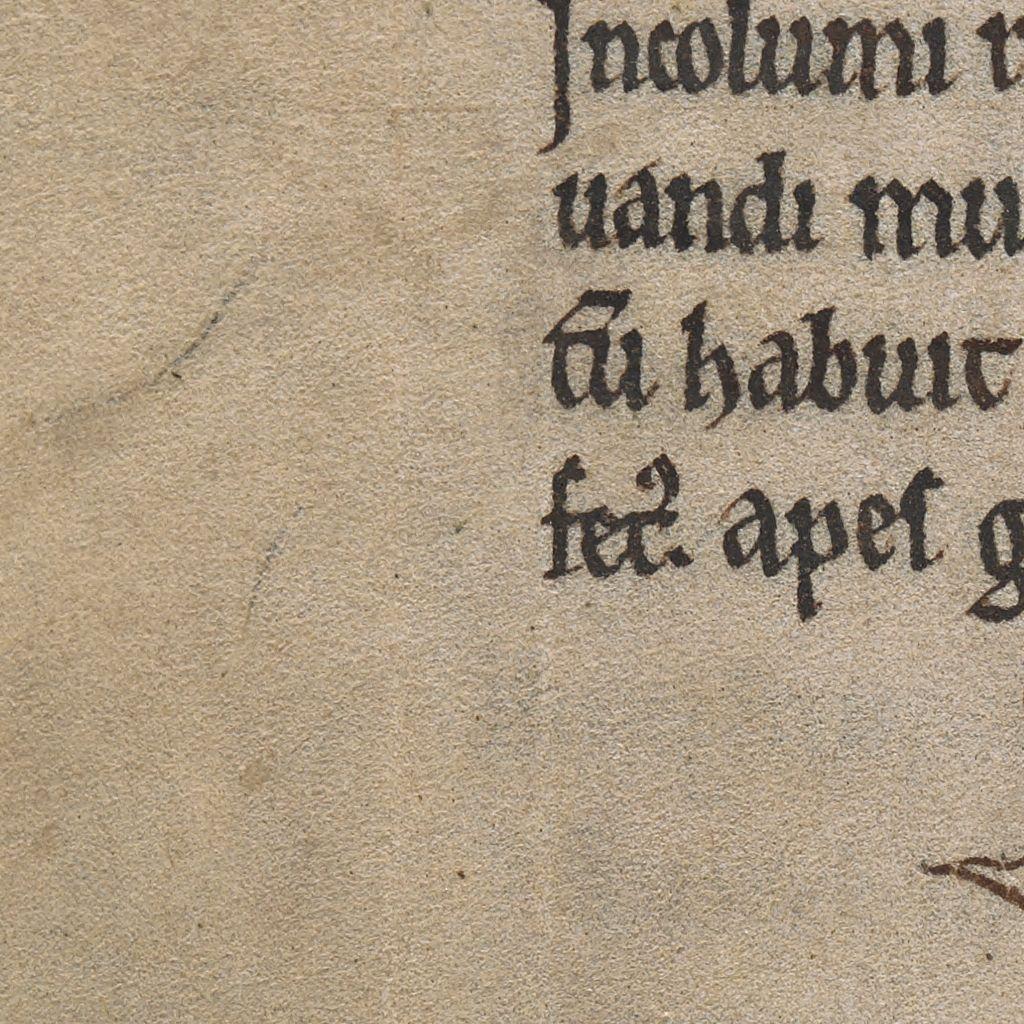 Incolumi r
uandi mu
cū habuit
fec̉. apeſ g